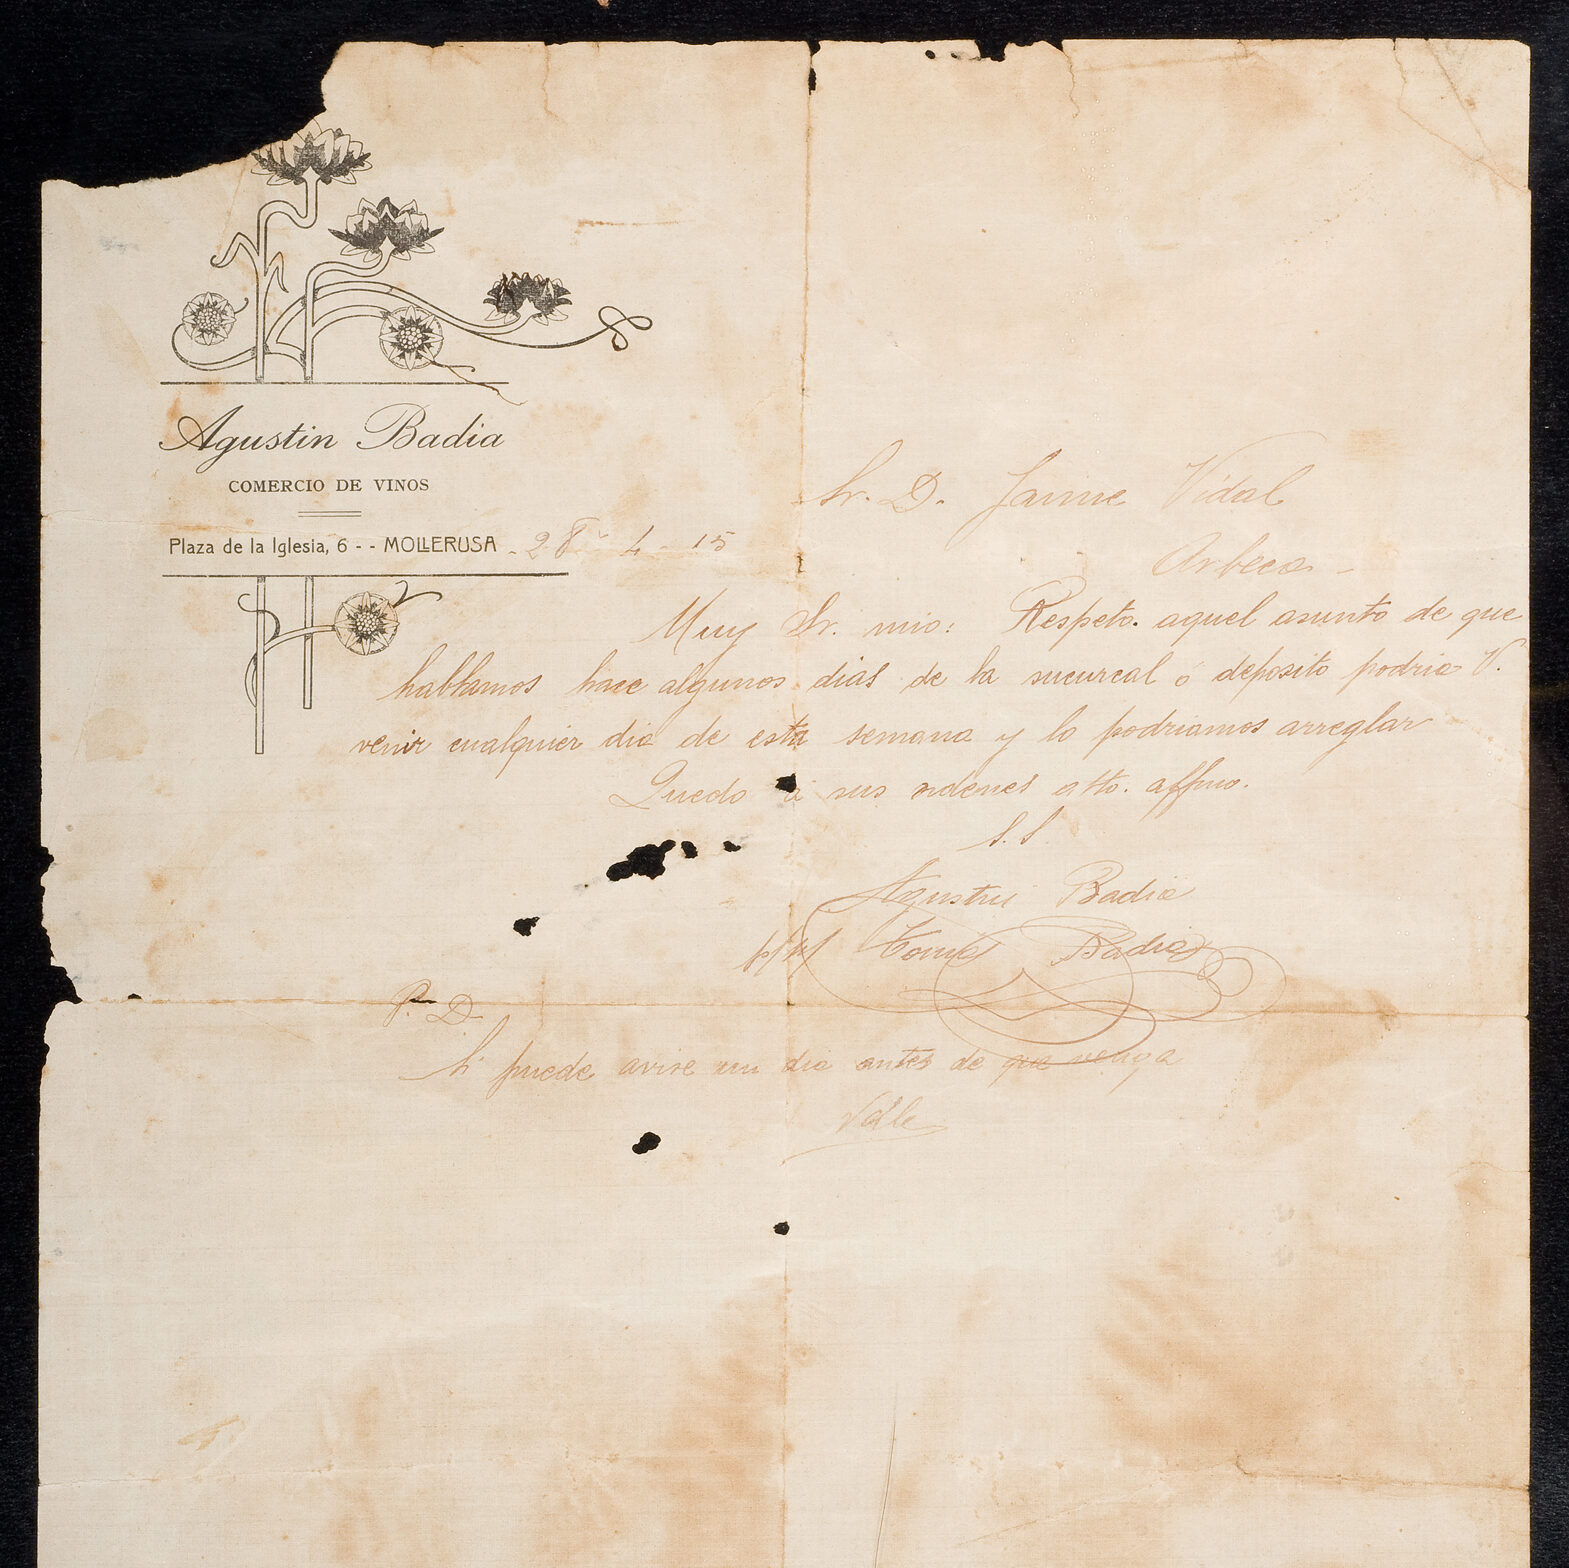 Agustin Badia
COMERCIO DE VINOS
Plaza de la Iglesia, 6 - - MOLLERUSA - 28 - 4 - 15
Sr. D. Jaime Vidal
Arbeca -
Muy Sr. mio: Respeto. aquel asunto de que
hablamos hace algunos dias de la sucursal ó deposito podria V.
venir cualquier dia de esta semana y lo podriamos arreglar
Quedo á sus ordenes atto. affmo.
S. S.
Agustin Badia
Tomás Badia
P. D.
Si puede avise un dia antes de que venga
Vale